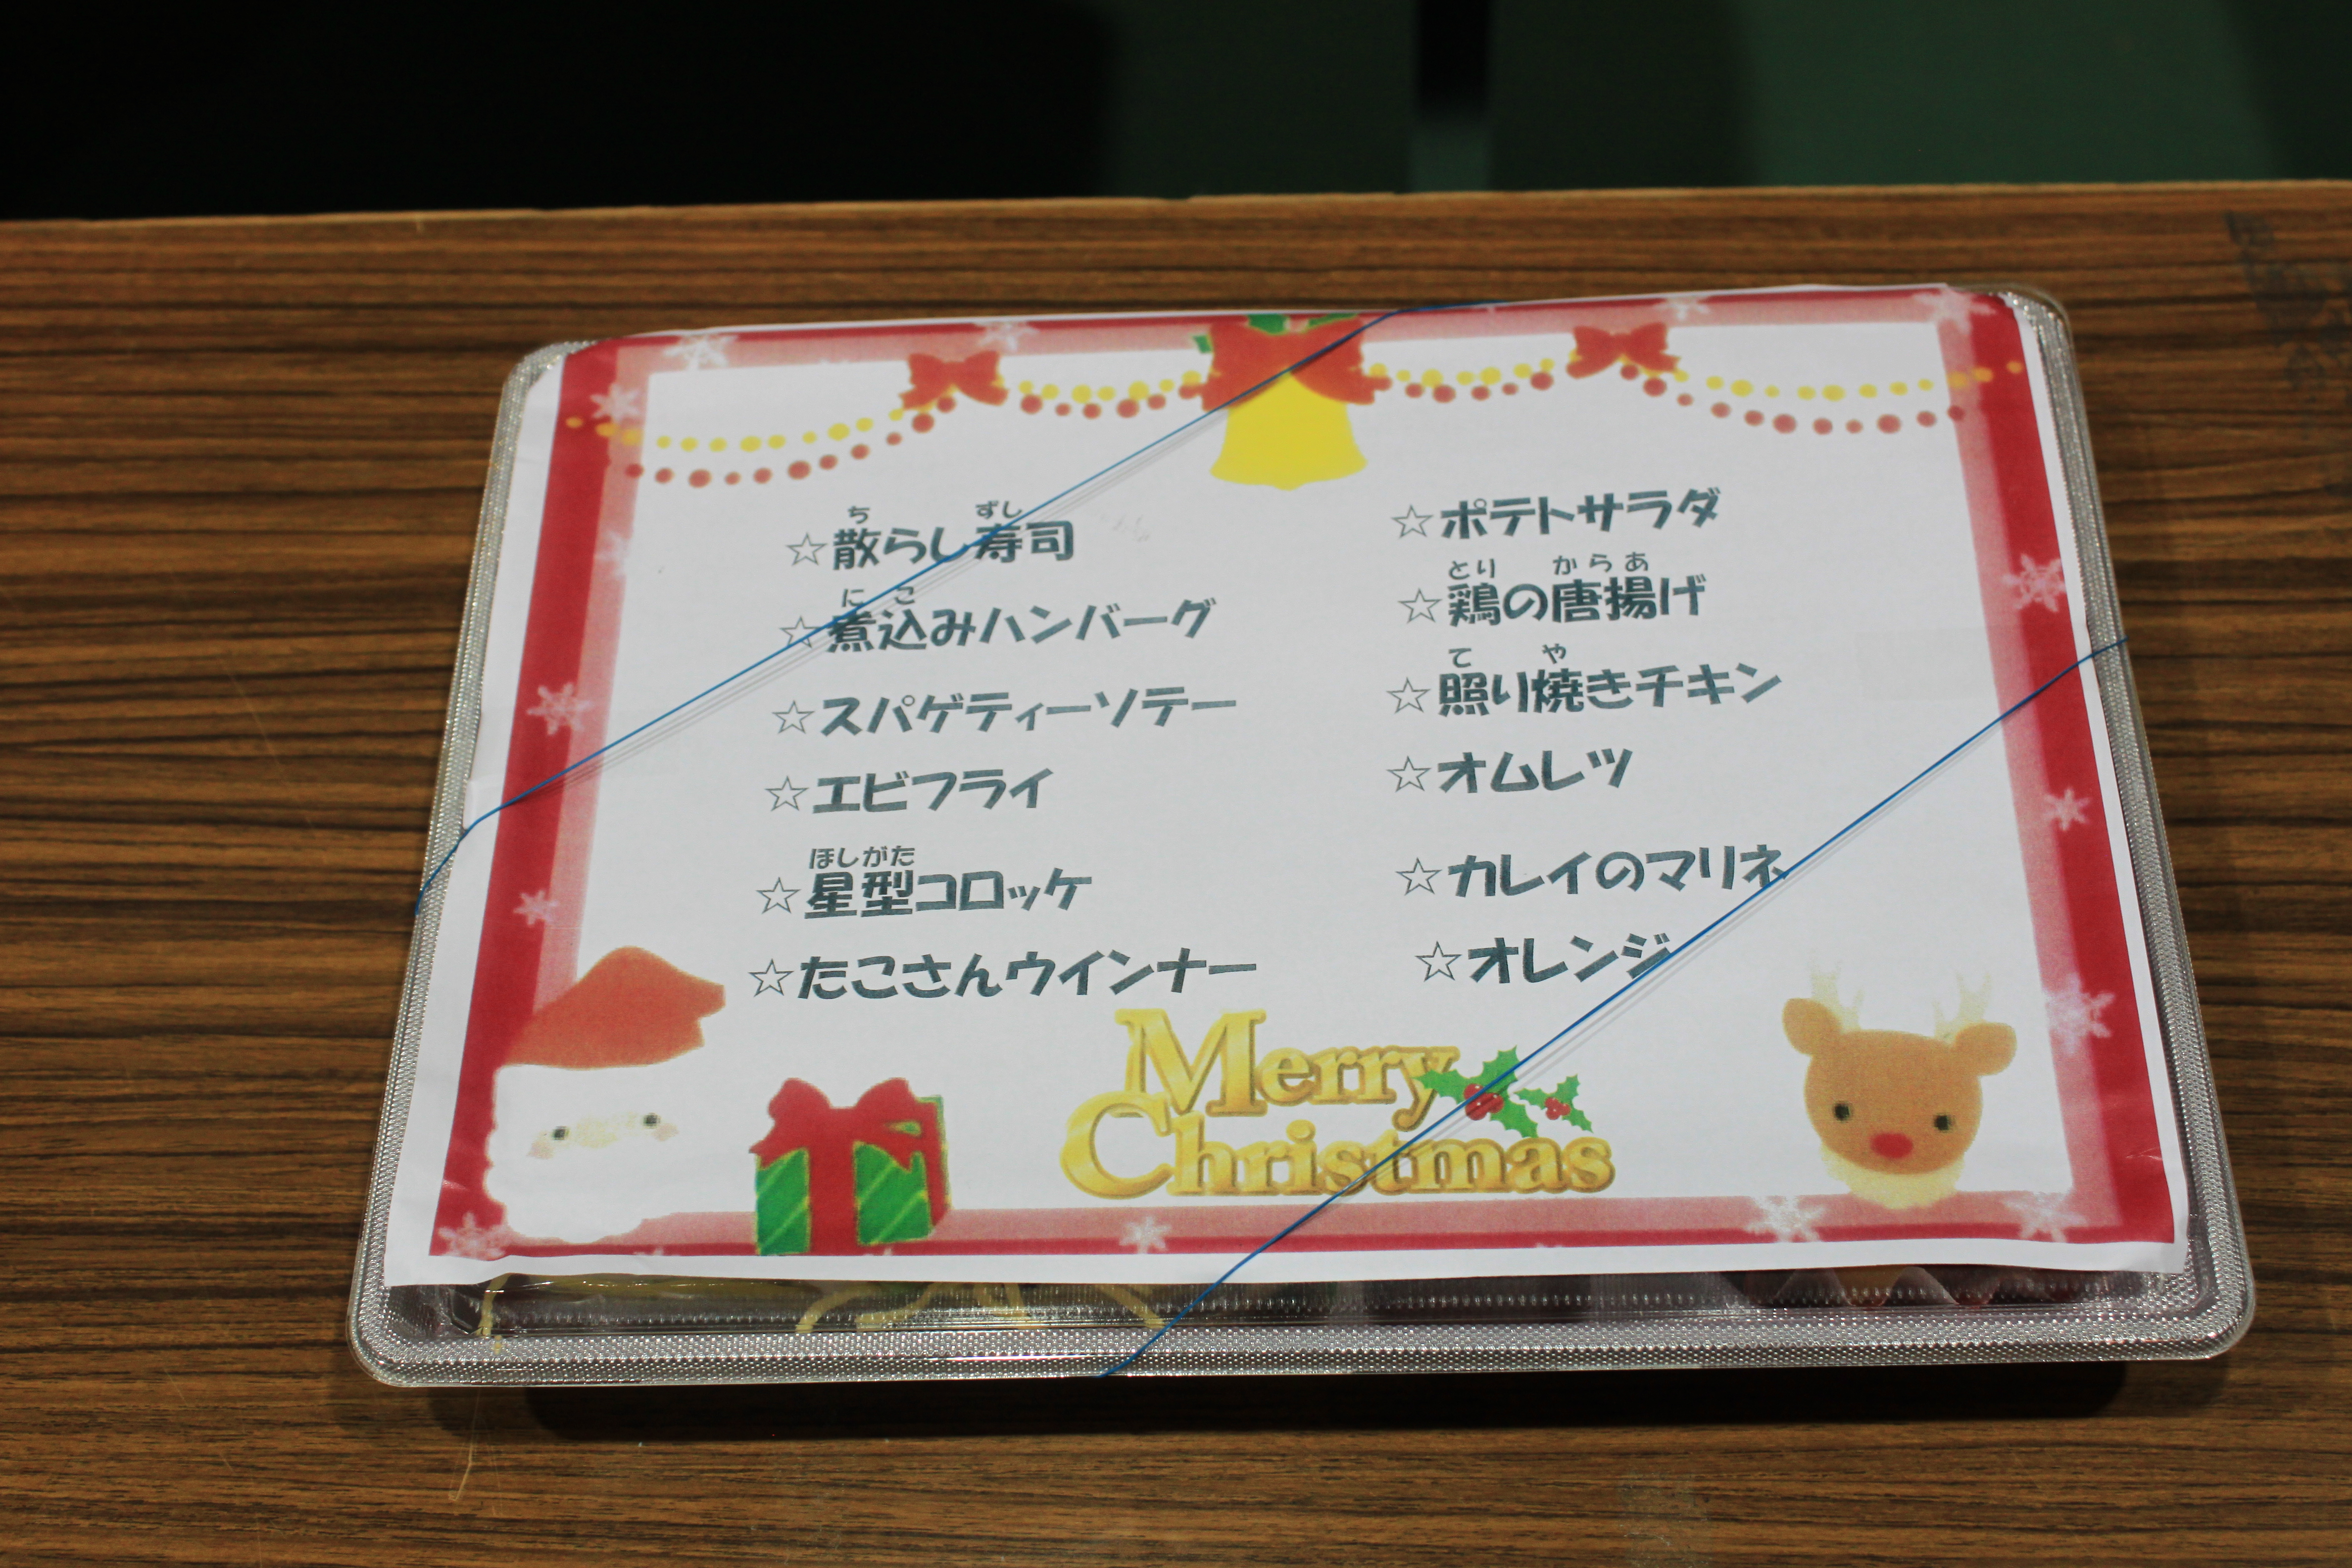 ち ずし
☆散らし寿司
に こ
☆煮込みハンバーグ
☆スパゲティーソテー
☆エビフライ
ほしがた
☆星型コロッケ
☆たこさんウインナー
☆ポテトサラダ
とり からあ
☆鶏の唐揚げ
て や
☆照り焼きチキン
☆オムレツ
☆カレイのマリネ
☆オレンジ
Merry
Christmas